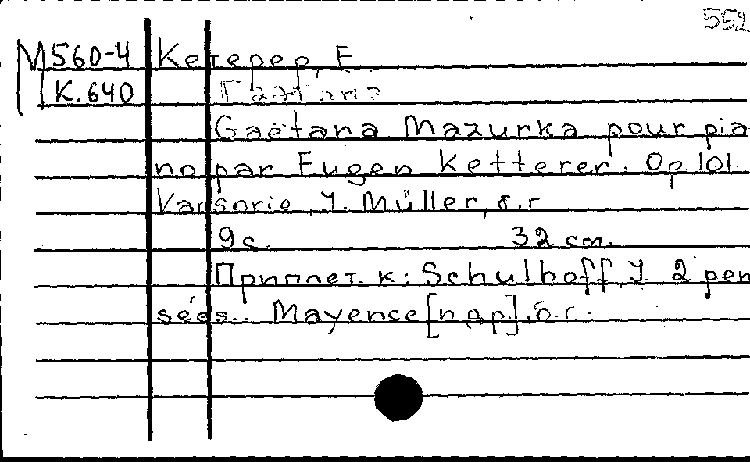 552
М560-4 Кетерер, Е.
К.640 Гаэтана
Gaëtana Mazurka pour pia
no par Eugen Ketterer. Op 101.
Varsovie, J. Müller, б.г.
9 с. 32 см.
Приплет. к: Schulhoff, J. 2 pen
sées. Mayence [и др], б.г.